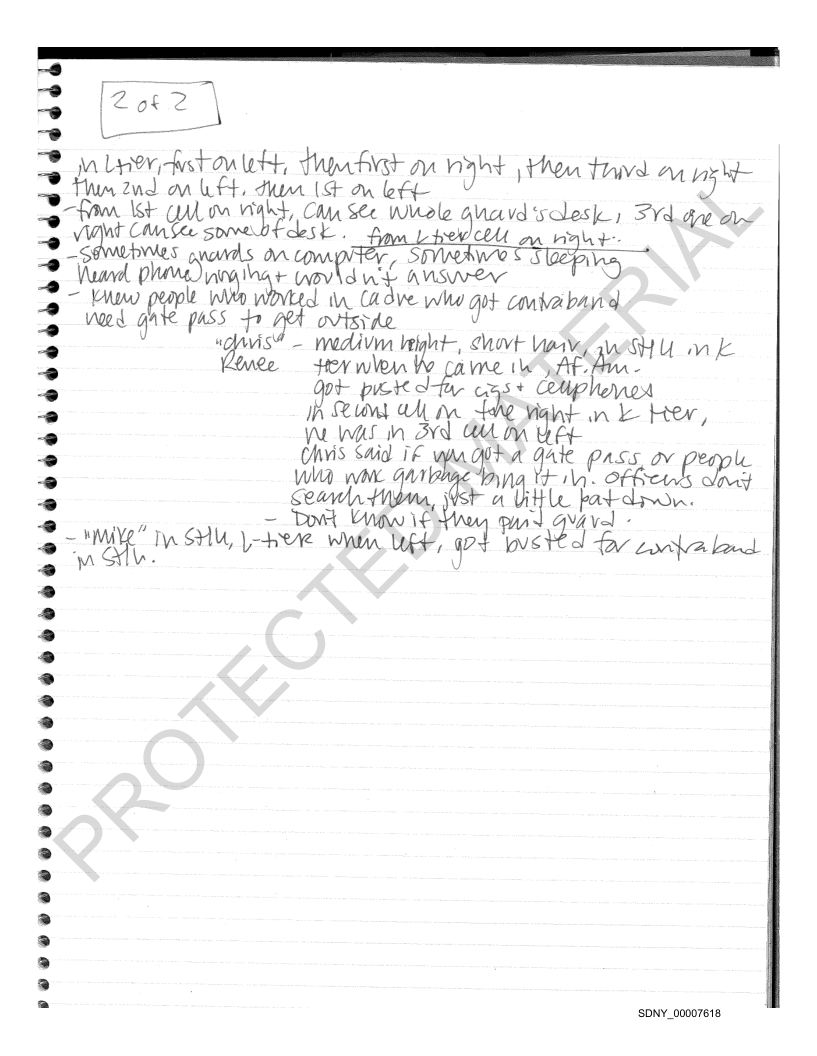 2 of 2
in L tier, first on left, then first on right, then third on right
then 2nd on left, then 1st on left
- from 1st cell on right, can see whole guard's desk, 3rd one on
right can see some of desk. from L tier cell on right.
- Sometimes guards on computer, sometimes sleeping
heard phone ringing + wouldn't answer
- Knew people who worked in cadre who got contraband
need gate pass to get outside
"Chris" - medium height, short hair, in SHU in K
Renee tier when he came in, Af. Am.
got busted for cigs + cellphones
in second cell on the right in K tier,
he was in 3rd cell on left
Chris said if you got a gate pass or people
who work garbage bring it in. Officers don't
search them, just a little pat down.
- Don't know if they paid guard.
- "Mike" in SHU, L-tier when left, got busted for contraband
in SHU.
PROTECTED MATERIAL
SDNY_00007618